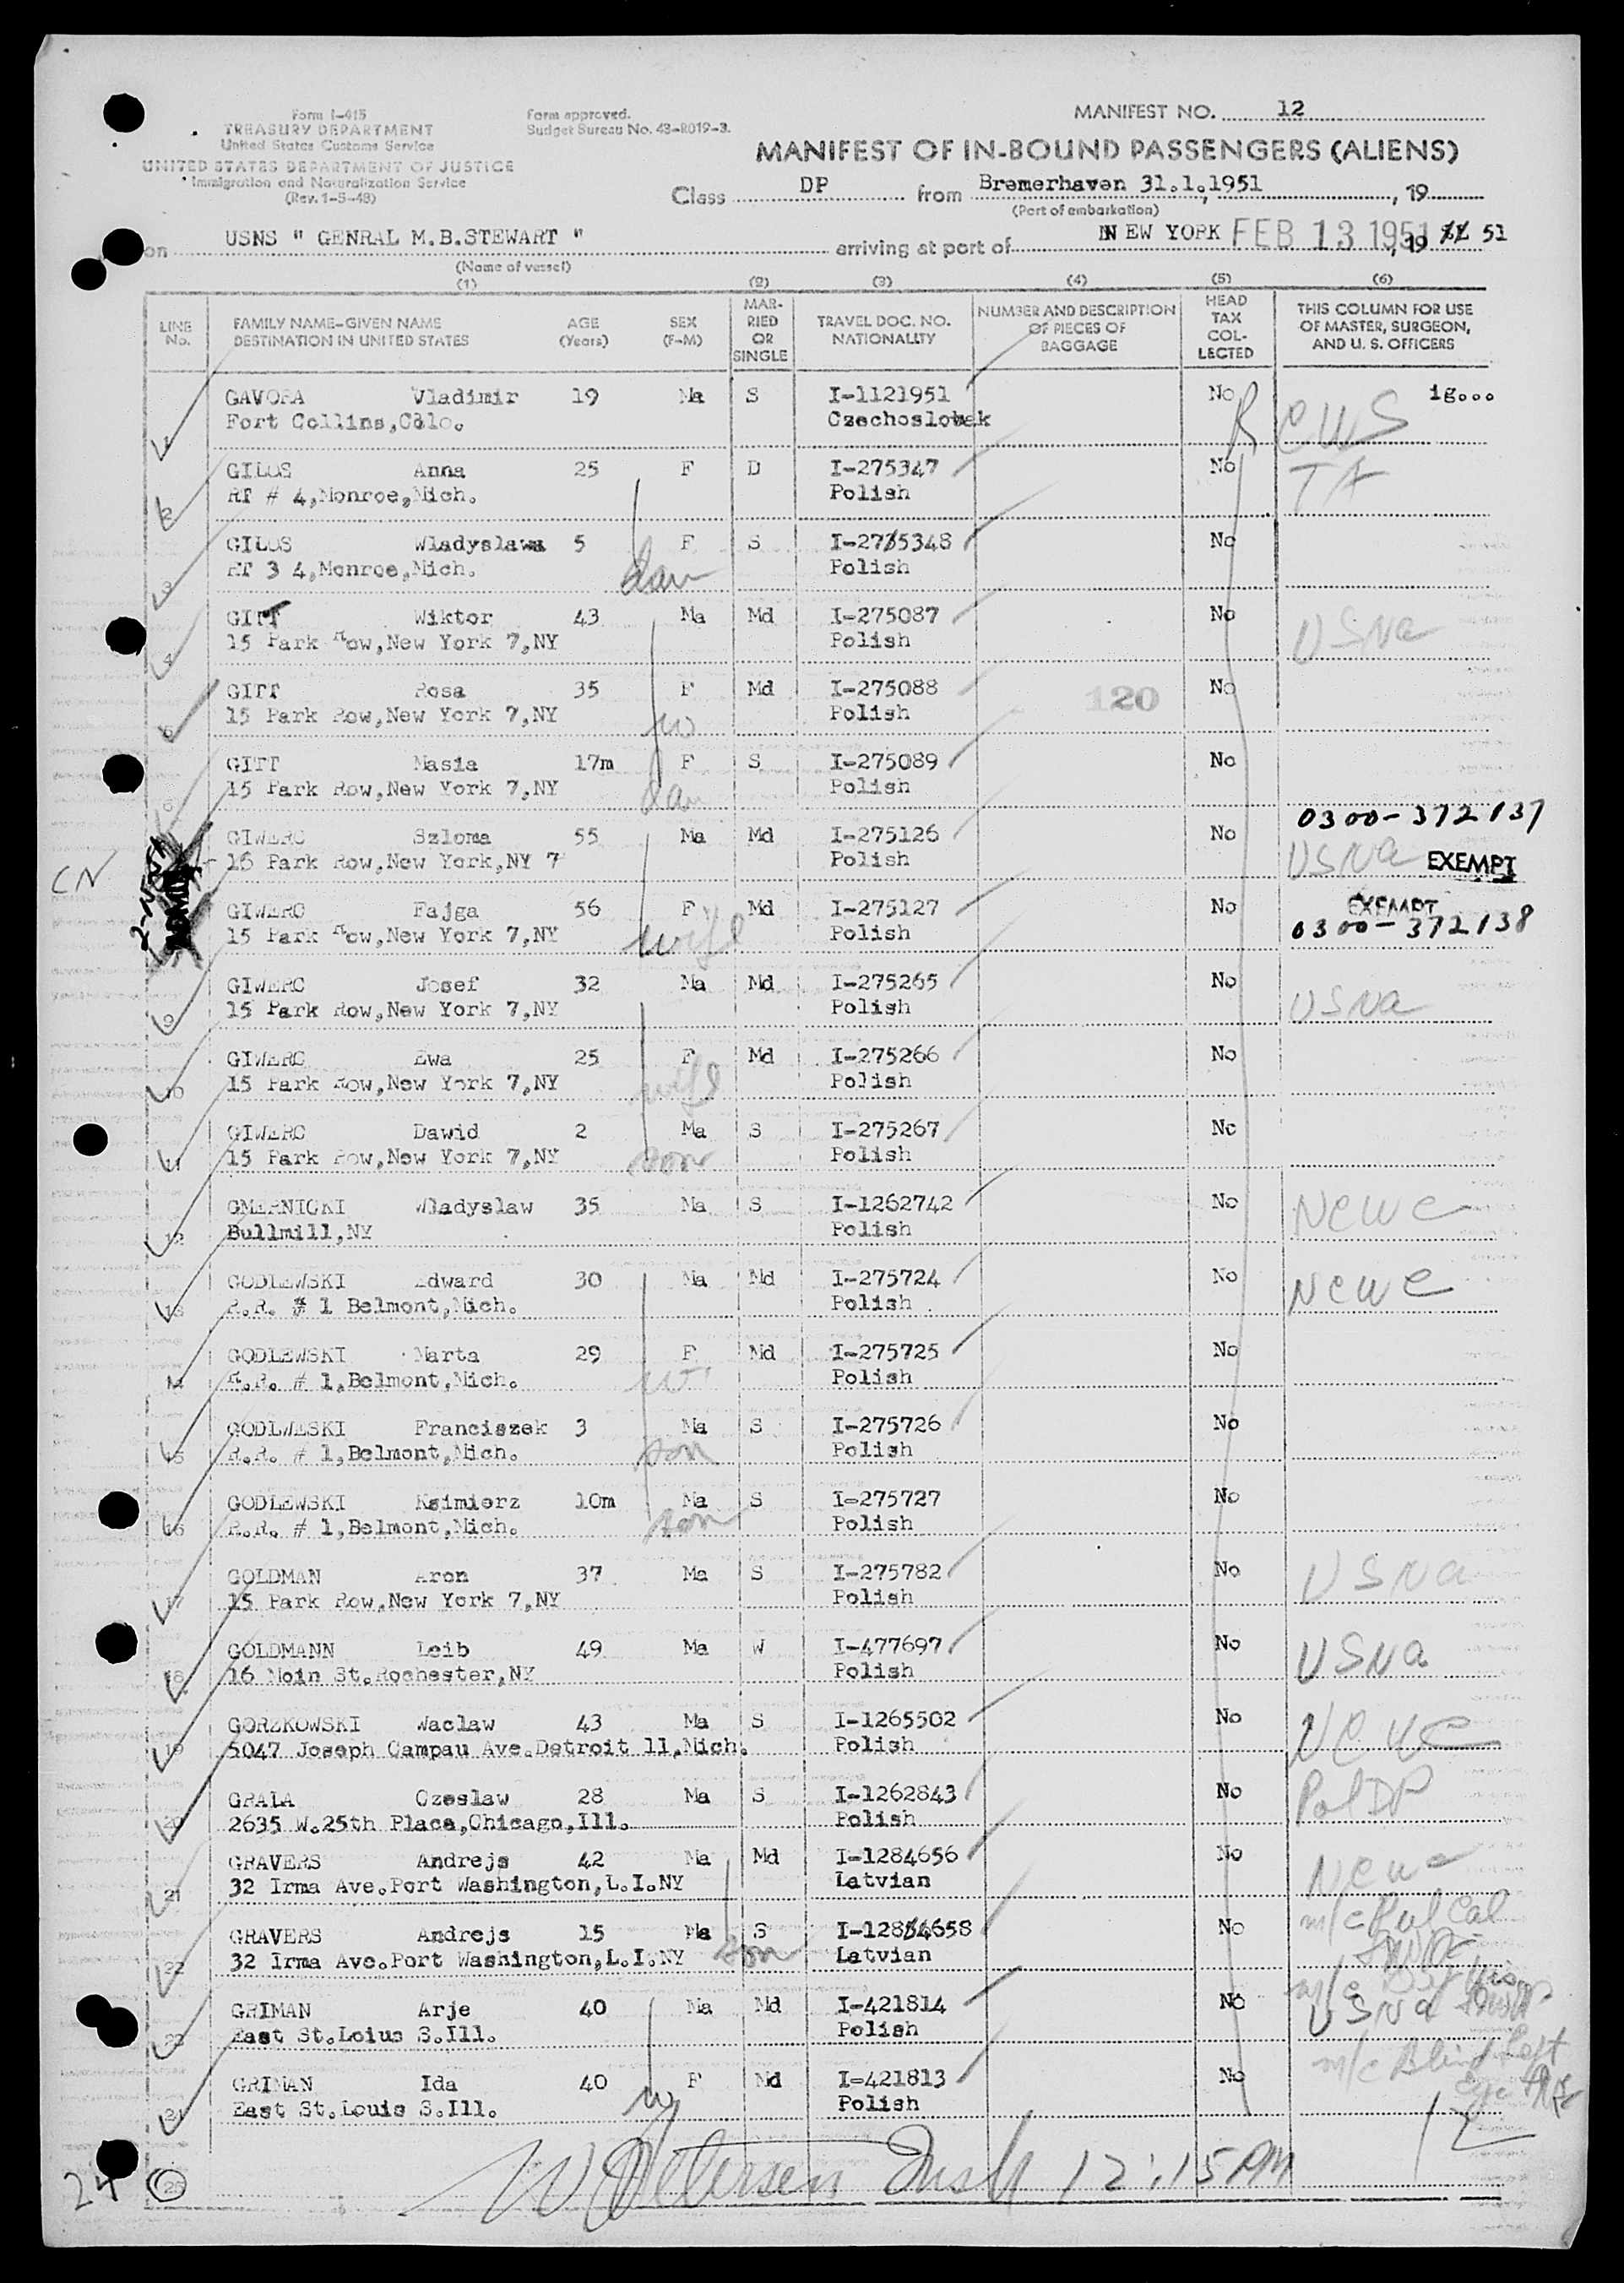 Form I-415
TREASURY DEPARTMENT
United States Customs Service
UNITED STATES DEPARTMENT OF JUSTICE
Immigration and Naturalization Service
(Rev. 1-5-48)
Form approved.
Budget Bureau No. 43-R019-3.
MANIFEST NO. 12
MANIFEST OF IN-BOUND PASSENGERS (ALIENS)
Class DP from Bremerhaven 31.1.1951, 19
(Port of embarkation)
on USNS " GENRAL M.B.STEWART " arriving at port of NEW YORK FEB 13 1951, 19 51
(Name of vessel)
(1) (2) (3) (4) (5) (6)
LINE No. FAMILY NAME-GIVEN NAME DESTINATION IN UNITED STATES AGE (Years) SEX (F-M) MARRIED OR SINGLE TRAVEL DOC. NO. NATIONALITY NUMBER AND DESCRIPTION OF PIECES OF BAGGAGE HEAD TAX COLLECTED THIS COLUMN FOR USE OF MASTER, SURGEON, AND U. S. OFFICERS
1 GAVORA Vladimir 19 Ma S I-1121951 No R CWS ig...
Fort Collins, Colo. Czechoslovak
2 GILOS Anna 25 F D I-275347 No
RT # 4,Monroe,Mich. Polish
3 GILOS Wladyslawa 5 F S I-275348 No
RT 3 4,Monroe,Mich. dau Polish
4 GITT Wiktor 43 Ma Md I-275087 No USNA
15 Park Row,New York 7,NY Polish
5 GITT Rosa 35 F Md I-275088 120 No
15 Park Row,New York 7,NY w Polish
6 GITT Masia 17m F S I-275089 No
15 Park Row,New York 7,NY dau Polish
0300-372137
GIWERC Szloma 55 Ma Md I-275126 No USNA EXEMPT
CN 16 Park Row,New York,NY 7 Polish
GIWERC Fajga 56 F Md I-275127 No EXEMPT
15 Park Row,New York 7,NY wife Polish 0300-372138
9 GIWERC Josef 32 Ma Md I-275265 No USNA
15 Park Row,New York 7,NY Polish
10 GIWERC Ewa 25 F Md I-275266 No
15 Park Row,New York 7,NY wife Polish
11 GIWERC Dawid 2 Ma S I-275267 No
15 Park Row,New York 7,NY son Polish
12 GMERNICKI Wladyslaw 35 Ma S I-1262742 No NCWC
Bullmill,NY Polish
13 GODLEWSKI Edward 30 Ma Md I-275724 No NCWC
R.R. # 1 Belmont,Mich. Polish
14 GODLEWSKI Marta 29 F Md I-275725 No
R.R. # 1,Belmont,Mich. w Polish
15 GODLWESKI Franciszek 3 Ma S I-275726 No
R.R. # 1,Belmont,Mich. son Polish
16 GODLEWSKI Ksimierz 10m Ma S I=275727 No
R.R. # 1,Belmont,Mich. son Polish
17 GOLDMAN Aron 37 Ma S I-275782 No USNA
15 Park Row,New York 7,NY Polish
18 GOLDMANN Leib 49 Ma W I-477697 No USNA
16 Moin St.Rochester,NY Polish
19 GORZKOWSKI Waclaw 43 Ma S I-1265502 No NCWC
5047 Joseph Campau Ave.Detroit 11,Mich. Polish
20 GRALA Czeslaw 28 Ma S I-1262843 No Pol DP
2635 W.25th Place,Chicago,Ill. Polish
21 GRAVERS Andrejs 42 Ma Md I-1284656 No NCWC
32 Irma Ave.Port Washington,L.I.NY Latvian
22 GRAVERS Andrejs 15 Ma S I-1284658 No m/c Pul Cal
32 Irma Ave.Port Washington,L.I.NY son Latvian
23 GRIMAN Arje 40 Ma Md I-421814 No USNA
East St.Loius S.Ill. Polish
24 GRIMAN Ida 40 F Md I=421813 No m/c Blind Left Eye
East St.Louis S.Ill. w Polish
24 25 12:15 PM